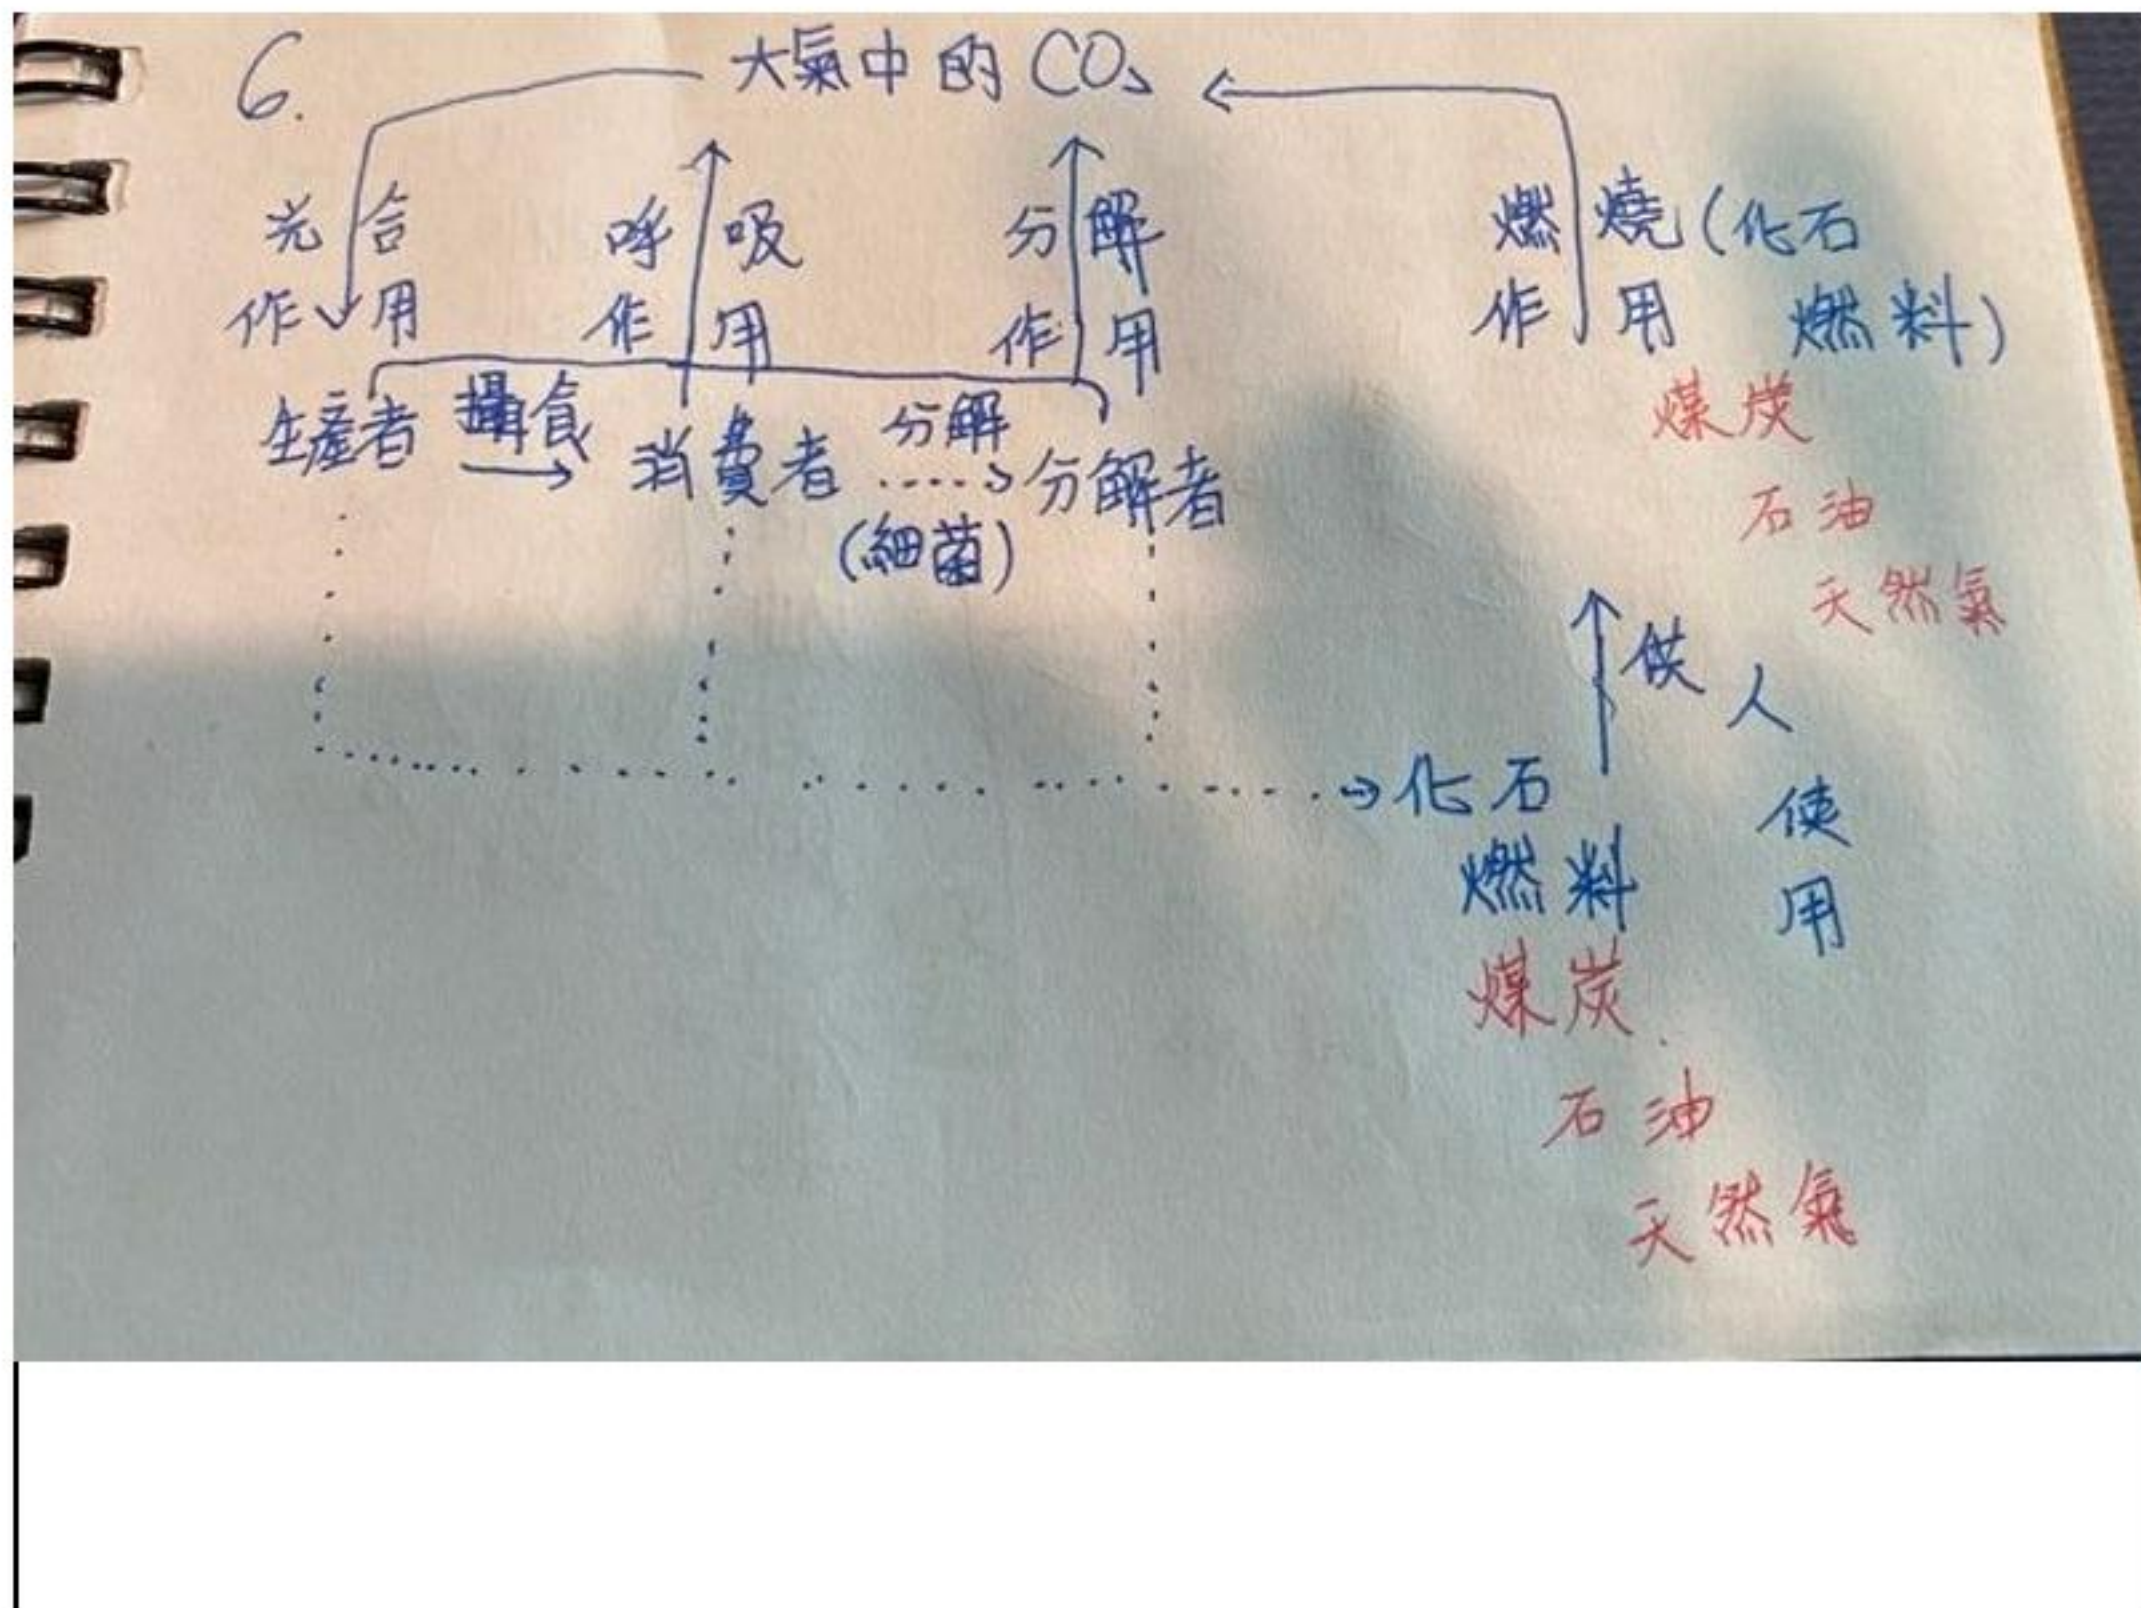 6.
大氣中的CO₂
光合作用
呼吸作用
分解作用
燃燒作用(化石燃料)
煤炭
石油
天然氣
生產者
攝食
消費者
分解
(細菌)
分解者
供人使用
化石
燃料
煤炭
石油
天然氣